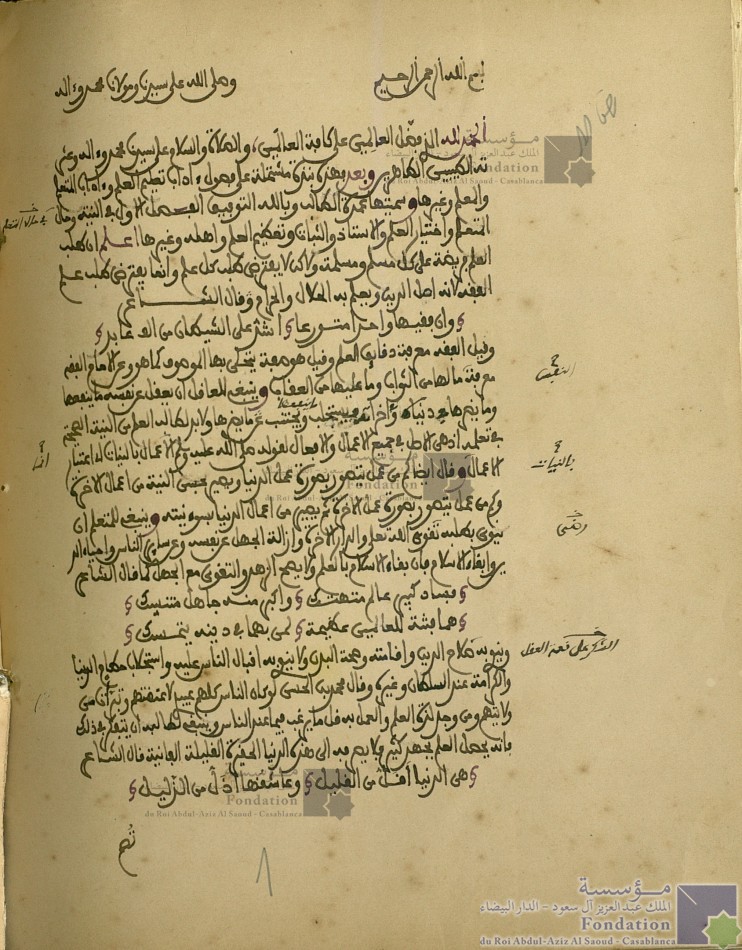 بسم الله الرحمن الرحيم وصلى الله على سيدنا ومولانا محمد وءاله
الحمد لله الذي فضل العالمين على كافة العالمين، والصلاة والسلام على سيدنا محمد وءاله وعتر
ته الطيبين الطاهرين وبعد فهذه نبذة مشتملة على فصول ءاداب تعليم العلم وءاداب المتعلم
والعلم وغيرها وسميتها عمدة الطالب وبالله التوفيق الفصل الاول في النية وحال
المتعلم واختيار العلم والاستاذ والثبات وتعظيم العلم واهله وغيرها اعلم ان طلب
العلم فريضة على كل مسلم ومسلمة ولاكن لا يفترض طلب كل علم وانما يفترض طلب علم
الفقه لانه اصل الدين ويعلم به الحلال والحرام وقال الشاعر
وان فقيها واحدا متورعا اشد على الشيطان من الف عابد
وقيل الفقه معرفة دقايق العلم وقيل هو صفة يتحلى بها الموصوف كما هو وعن الامام الفقه
معرفة ما لها من الثواب وما عليها من العقاب وينبغي للعاقل ان يعقل عن نفسه ما ينفعها
وما يضرها في دنياه وأخراه فيستجلب ويجتنب عما يضرها ولابد لطالب العلم من النية الصحيح
في تعلمه اذ هي الاصل في جميع الاعمال والافعال لقوله صلى الله عليه وسلم الاعمال بالنيات له اعتبار
الاعمال وقال ايضا كم من عمل يتصور بصورة عمل الدنيا ويصير بحسن النية من اعمال الاخرة
وكم من عمل يتصور بصورة عمل الاخرة ثم يصير من اعمال الدنيا بسوء نيته وينبغي للمتعلم ان
ينوي بطلبه تقوى الله تعلى والدار الاخرة وازالة الجهل عن نفسه وعن ساير الناس واحياء الد
ين وابقاء الاسلام فان بقاء الاسلام بالعلم ولا يصح الزهد والتقوى مع الجهل كما قال الشاعر
فساد كبير عالم متهتك واكبر منه جاهل متنسك
هما فتنة للعالمين عظيمة لمن بهما في دينه يتمسك
وينوي به صلاح الدين واقامته وصحة البدن ولا ينوي به اقبال الناس عليه واستجلاب حطام الدنيا
والكرامة عند السلطان وغيره وقال محمد بن الحسن لو كان الناس كلهم عبيدا لاعتقتهم وتبرأت من
ولائهم ومن وجد لذة العلم والعمل به قل ما يرغب فيما عند الناس وينبغي لطالبه ان يتفكر في ذلك
فانه يحصل العلم بجهد كثير ولا يصرفه الى هذه الدنيا الحقيرة القليلة الفانية قال الشاعر
هي الدنيا أقل من القليل وعاشقها أذل من الذليل
تصم
في حال التعلم
النفس
بالنيات
انما
رضى
الشكر على نعمة العقل
1
مؤسسة
الملك عبد العزيز آل سعود - الدار البيضاء
Fondation
du Roi Abdul-Aziz Al Saoud - Casablanca